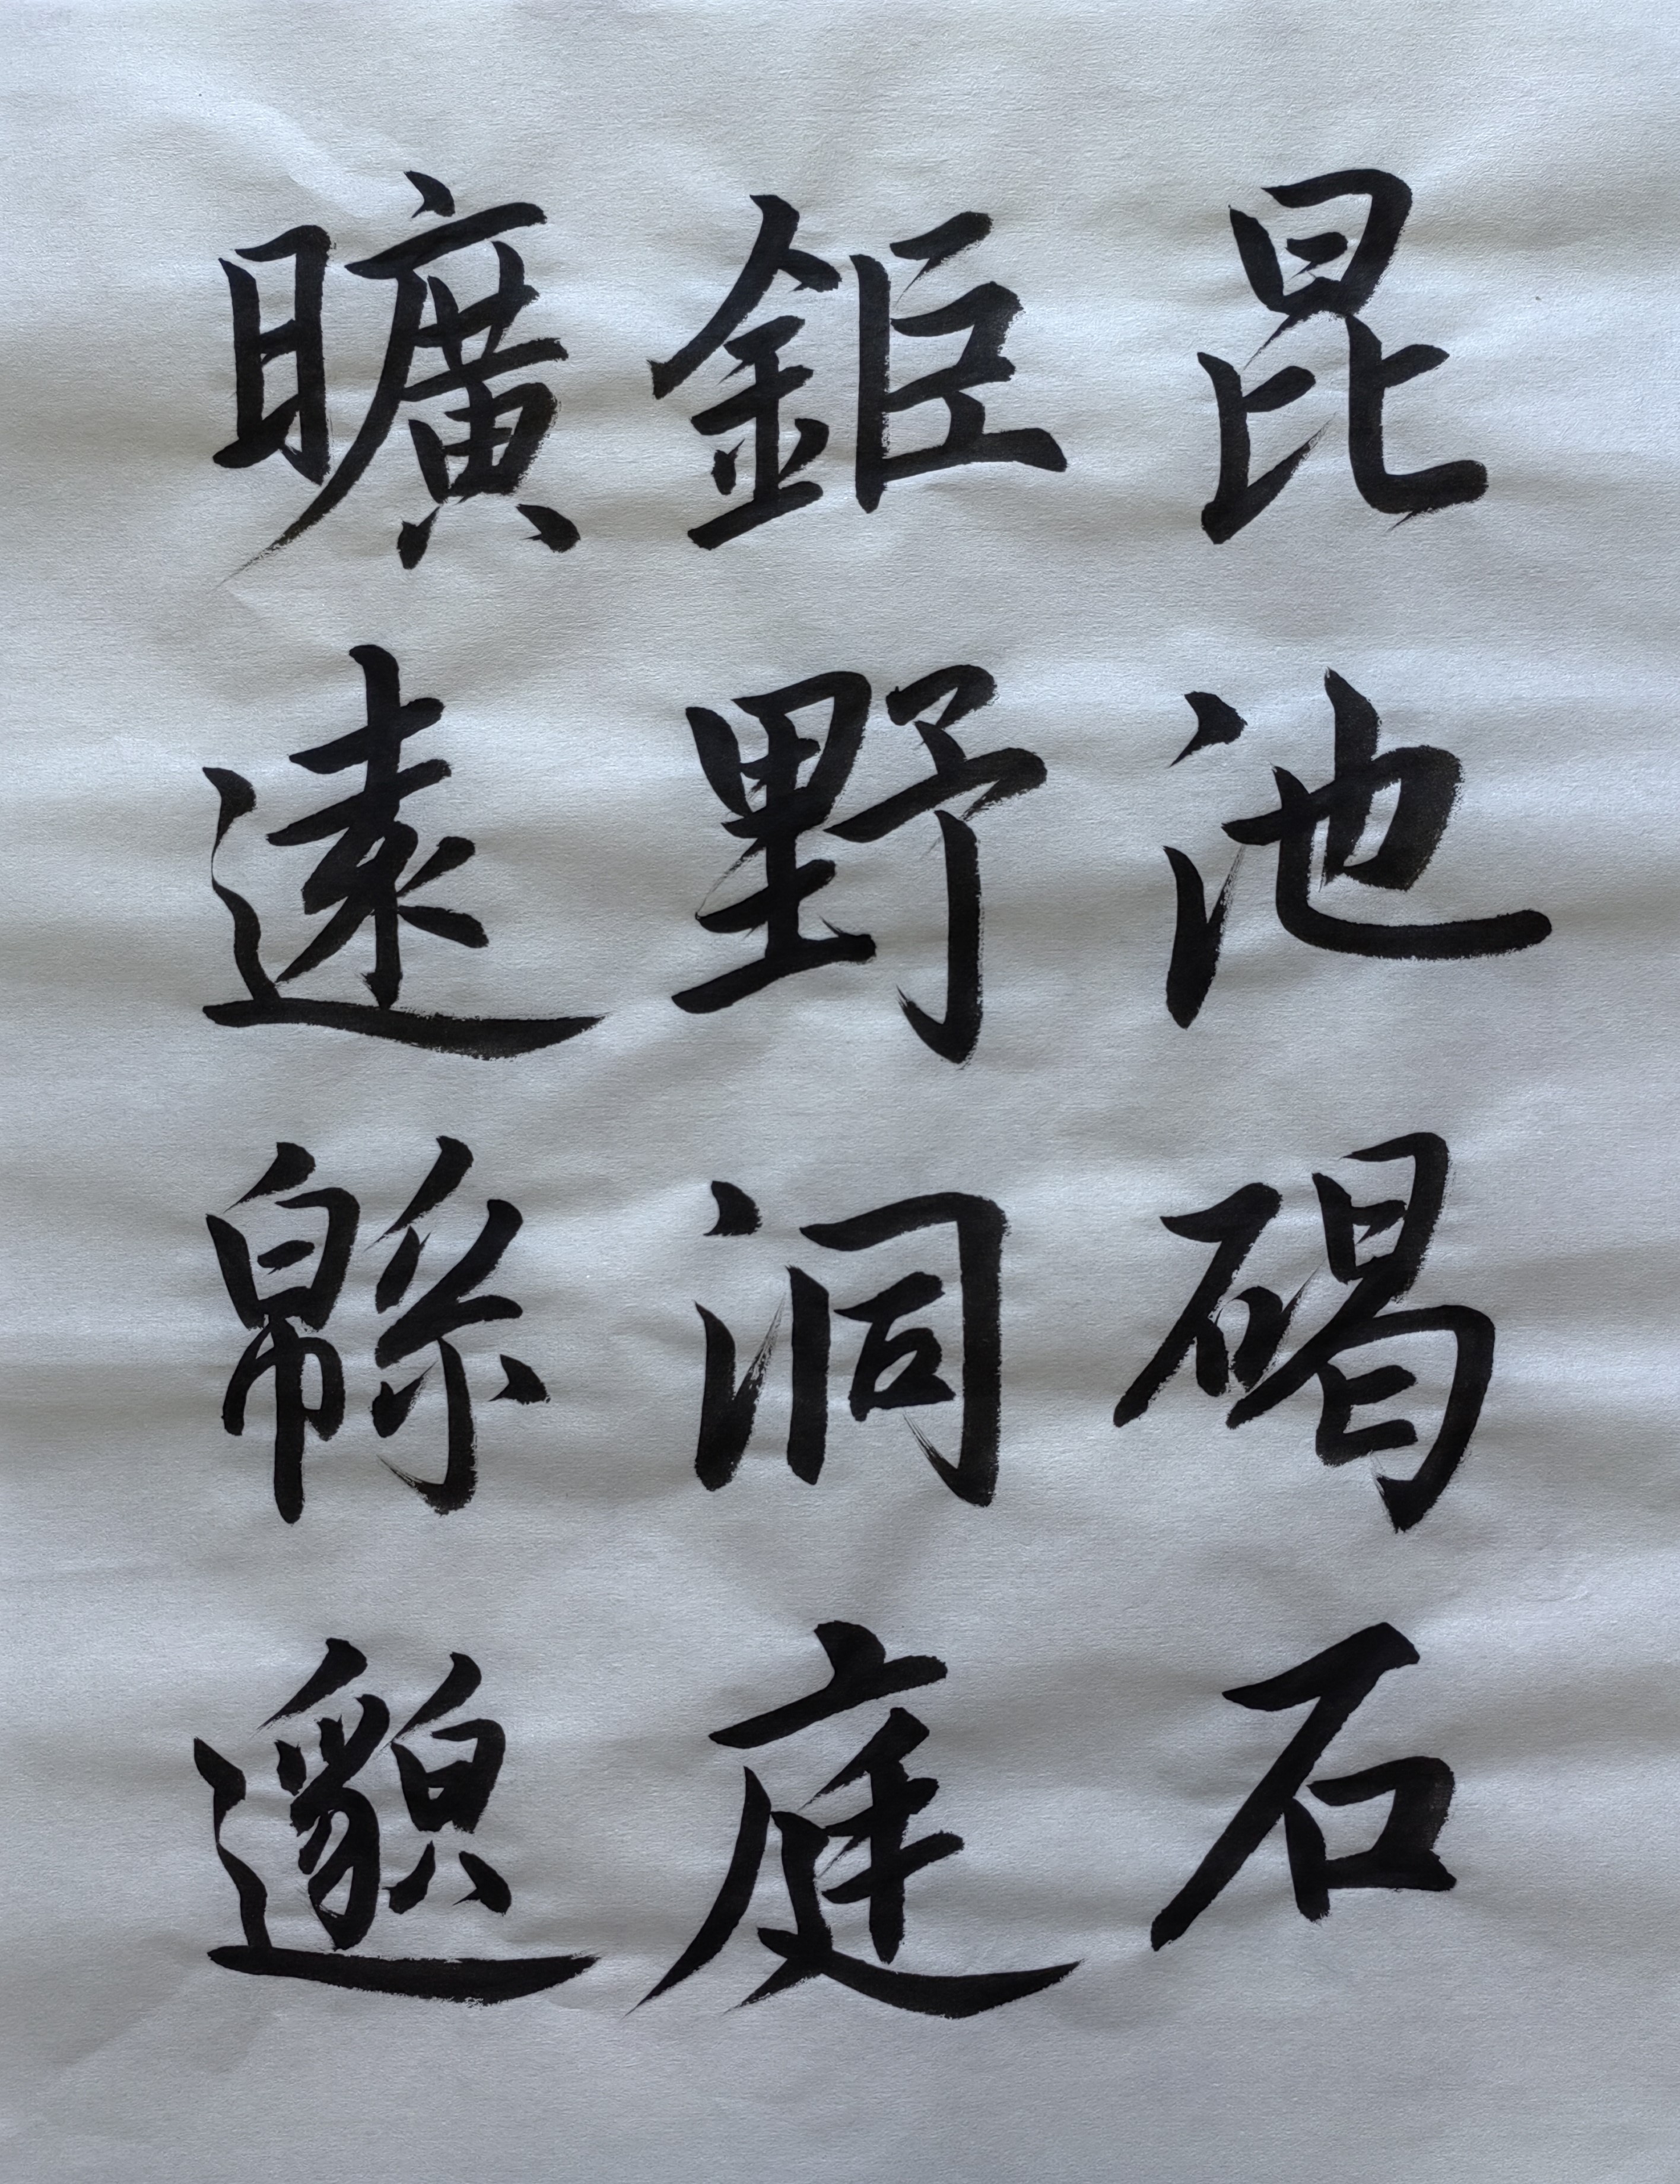 昆池碣石
鉅野洞庭
曠遠緜邈